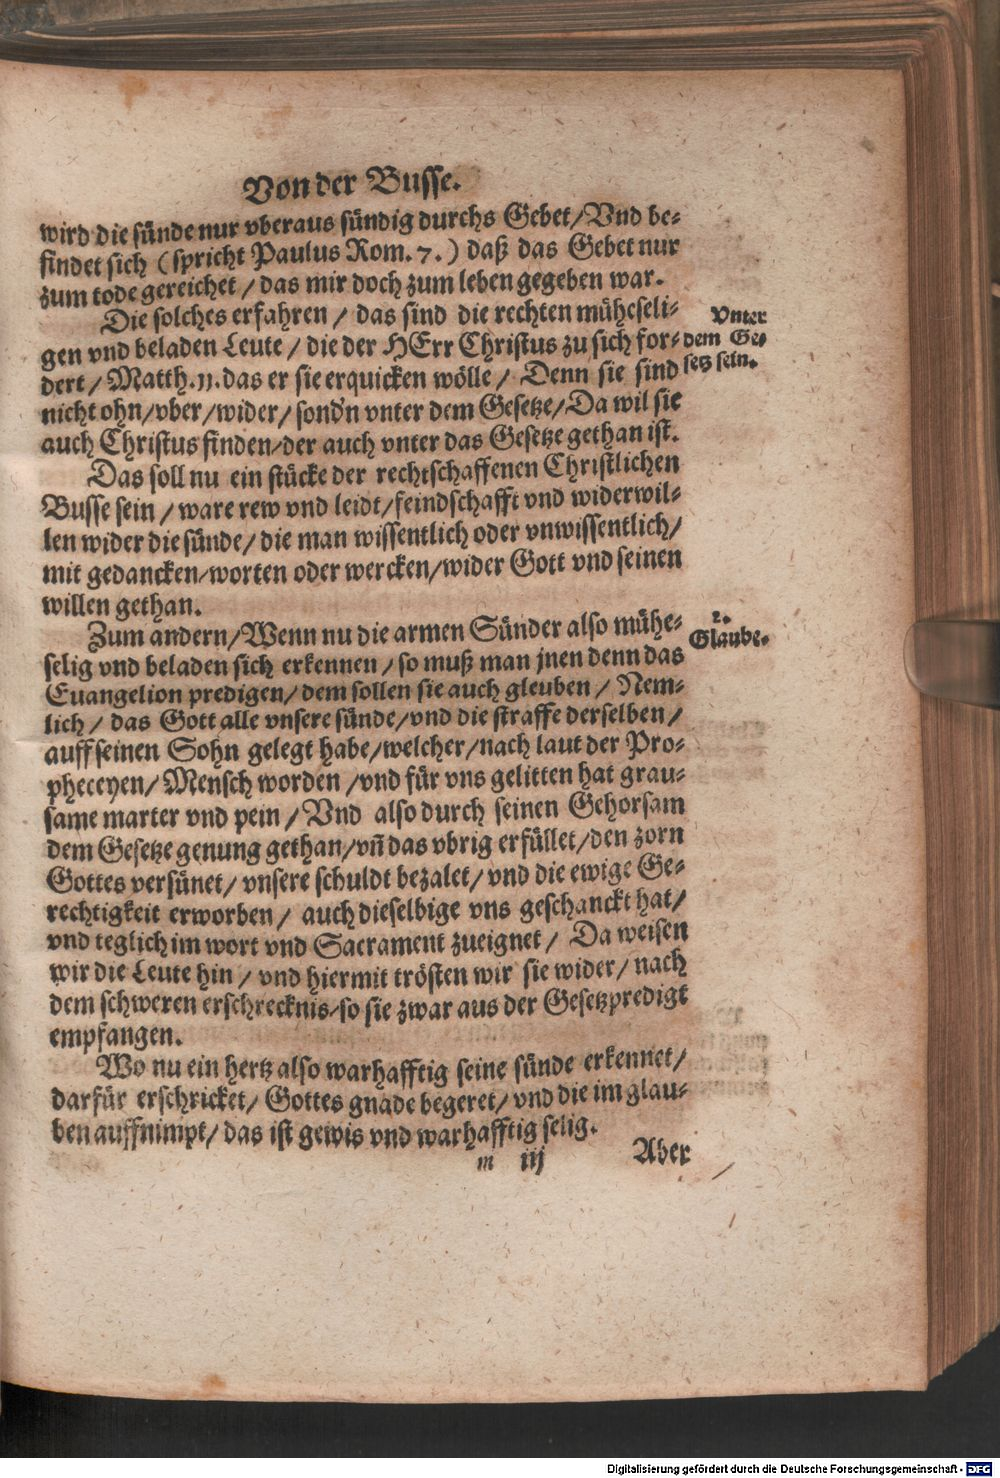 Von der Busse.
wird die sünde nur vberaus sündig durchs Gebet/Vnd be-
findet sich (spricht Paulus Rom. 7.) daß das Gebet nur
zum tode gereichet / das mir doch zum leben gegeben war.
Die solches erfahren / das sind die rechten müheseli-
gen vnd beladen Leute / die der HErr Christus zu sich for-
dert / Matth. 11. das er sie erquicken wölle / Denn sie sind
nicht ohn/vber/wider/ sond'n vnter dem Gesetze/Da wil sie
auch Christus finden/der auch vnter das Gesetze gethan ist.
Vnter
dem Ge-
setz sein.
Das soll nu ein stücke der rechtschaffenen Christlichen
Busse sein / ware rew vnd leidt/feindschafft vnd widerwil-
len wider die sünde/ die man wissentlich oder vnwissentlich/
mit gedancken/worten oder wercken/wider Gott vnd seinen
willen gethan.
Zum andern/Wenn nu die armen Sünder also mühe-
selig vnd beladen sich erkennen / so muß man jnen denn das
Euangelion predigen/ dem sollen sie auch gleuben / Nem-
lich / das Gott alle vnsere sünde/vnd die straffe derselben /
auff seinen Sohn gelegt habe/welcher/nach laut der Pro-
pheceyen/ Mensch worden /vnd für vns gelitten hat grau-
same marter vnd pein / Vnd also durch seinen Gehorsam
dem Gesetze genung gethan/vñ das vbrig erfüllet/den zorn
Gottes versünet/ vnsere schuldt bezalet/ vnd die ewige Ge-
rechtigkeit erworben/ auch dieselbige vns geschanckt hat/
vnd teglich im wort vnd Sacrament zueignet / Da weisen
wir die Leute hin / vnd hiermit trösten wir sie wider/ nach
dem schweren erschrecknis/so sie zwar aus der Gesetzpredigt
empfangen.
2.
Glaube.
Wo nu ein hertz also warhafftig seine sünde erkennet/
darfür erschricket/ Gottes gnade begeret/ vnd die im glau-
ben auffnimpt/ das ist gewis vnd warhafftig selig.
m iij Aber
Digitalisierung gefördert durch die Deutsche Forschungsgemeinschaft - DFG